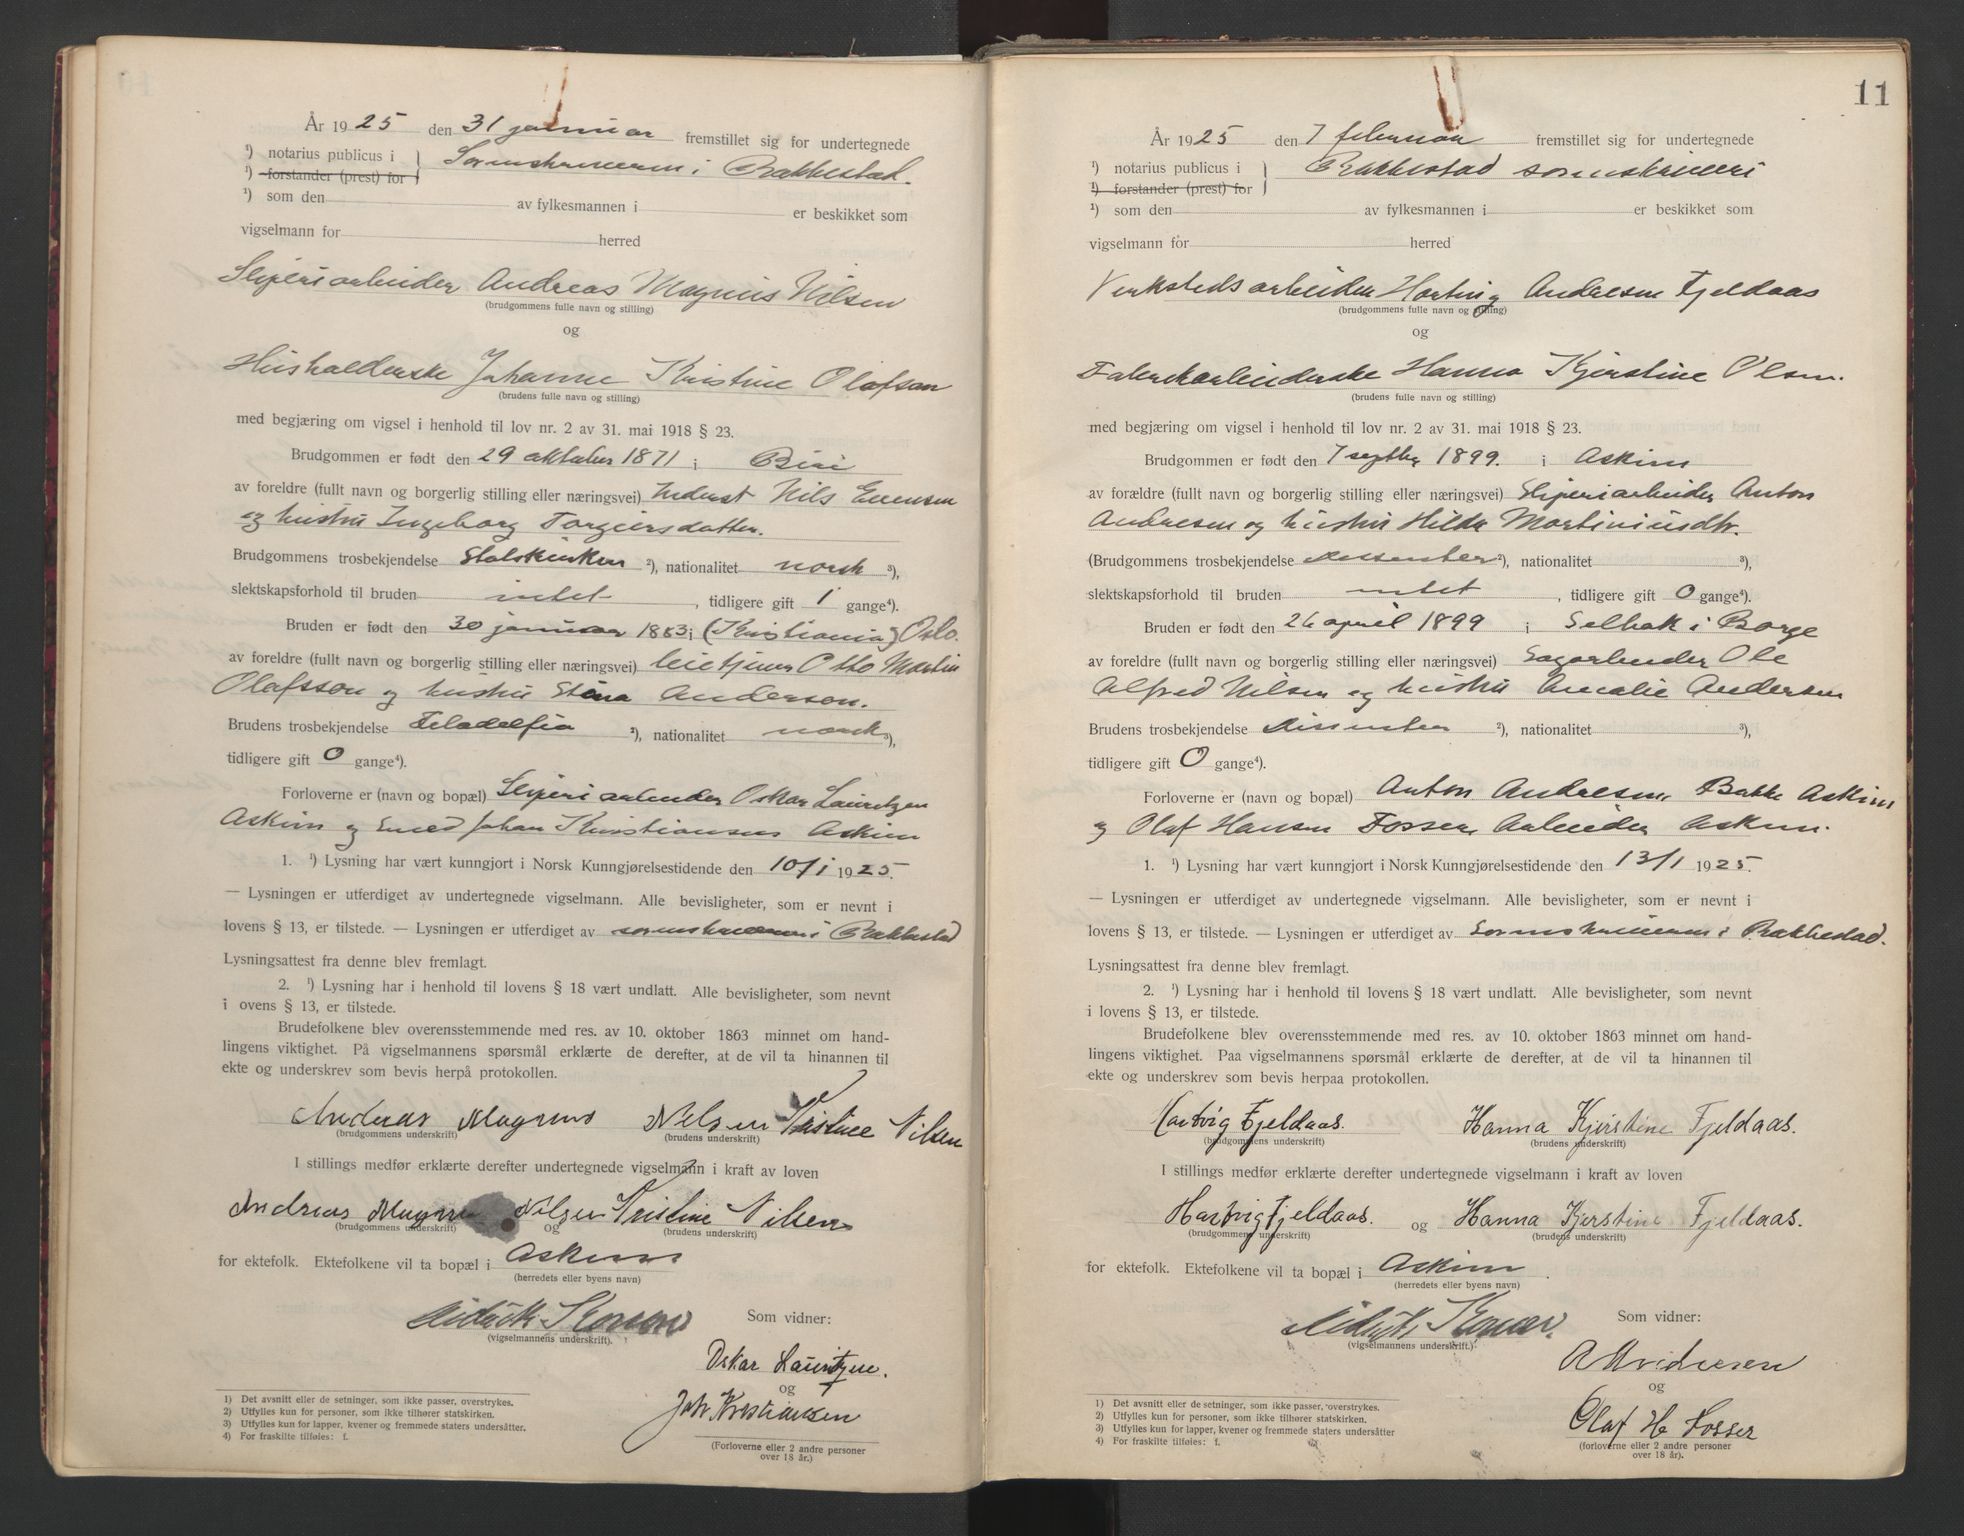 År 1925 den 31 januar fremstillet sig for undertegnede
¹) notarius publicus i } Sorenskriveren i Rakkestad.
¹) forstander (prest) for
¹) som den av fylkesmannen i er beskikket som
vigselmann for herred
Sliperiarbeider Andreas Magnus Nilsen
(brudgommens fulle navn og stilling)
og
Husholderske Johanne Kristine Olafson
(brudens fulle navn og stilling)
med begjæring om vigsel i henhold til lov nr. 2 av 31. mai 1918 § 23.
Brudgommen er født den 29 oktober 1871 i Biri
av foreldre (fullt navn og borgerlig stilling eller næringsvei) Inderst Nils Evensen
og hustru Ingeborg Torgeirsdatter.
Brudgommens trosbekjendelse Statskirken ²), nationalitet norsk ³),
slektskapsforhold til bruden intet, tidligere gift 1 gange⁴).
Bruden er født den 30 januar 1883 i (Kristiania) Oslo.
av foreldre (fullt navn og borgerlig stilling eller næringsvei) leietjener Otto Martin
Olafsson og hustru Stina Anderson.
Brudens trosbekjendelse Filadelfia ²), nationalitet norsk ³),
tidligere gift 0 gange⁴).
Forloverne er (navn og bopæl) Sliperiarbeider Oskar Lauritzen
Askim og Smed Johan Kristiansen Askim
1. ¹) Lysning har vært kunngjort i Norsk Kunngjørelsestidende den 10/1 1925.
— Lysningen er utferdiget av undertegnede vigselmann. Alle bevisligheter, som er nevnt i
lovens § 13, er tilstede. — Lysningen er utferdiget av sorenskriveren i Rakkestad
Lysningsattest fra denne blev fremlagt.
2. ¹) Lysning har i henhold til lovens § 18 vært undlatt. Alle bevisligheter, som nevnt
i ovens § 13, er tilstede.
Brudefolkene blev overensstemmende med res. av 10. oktober 1863 minnet om hand-
lingens viktighet. På vigselmannens spørsmål erklærte de derefter, at de vil ta hinannen til
ekte og underskrev som bevis herpå protokollen.
Andreas Magnus Nilsen Kristine Nilsen
(brudgommens underskrift) (brudens underskrift)
I stillings medfør erklærte derefter undertegnede vigselmann i kraft av loven
Andreas Magnus Nilsen Kristine Nilsen
(brudgommens underskrift) og (brudens underskrift)
for ektefolk. Ektefolkene vil ta bopæl i Askim
(herredets eller byens navn)
(vigselmannens underskrift).
Som vidner:
Oskar Lauritzen.
og
Joh. Kristiansen
(Forloverne eller 2 andre personer
over 18 år.)
1) Det avsnitt eller de setninger, som ikke passer, overstrykes.
2) Utfylles kun for personer, som ikke tilhører statskirken.
3) Utfylles kun for lapper, kvener og fremmede staters undersåtter.
4) For fraskilte tilføles: f.
11
År 1925 den 7 februar fremstillet sig for undertegnede
¹) notarius publicus i } Rakkestad sorenskriveri
¹) forstander (prest) for
¹) som den av fylkesmannen i er beskikket som
vigselmann for herred
Verkstedsarbeider Hartvig Andresen Fjeldaas
(brudgommens fulle navn og stilling)
og
Fabrikarbeiderske Hanna Kjerstine Olsen.
(brudens fulle navn og stilling)
med begjæring om vigsel i henhold til lov nr. 2 av 31. mai 1918 § 23.
Brudgommen er født den 7 septbr 1899. i Askim
av forældre (fullt navn og borgerlig stilling eller næringsvei) Sliperiarbeider Anton
Andresen og hustru Hilda Martiniusdtr.
(Brudgommens trosbekjendelse dissenter ²), nationalitet ³),
slektskapsforhold til bruden intet, tidligere gift 0 gange⁴).
Bruden er født den 26 april 1899 i Selbak i Borge
av foreldre (fullt navn og borgerlig stilling eller næringsvei) Sagarbeider Ole
Alfred Nilsen og hustru Amalie Andersen
Brudens trosbekjendelse dissenter ²), nationalitet ³),
tidligere gift 0 gange⁴).
Forloverne er (navn og bopæl) Anton Andresen, Bakke Askim
og Olaf Hansen Fosser Arbeider Askim.
1. ¹) Lysning har vært kunngjort i Norsk Kunngjørelsestidende den 13/1 1925.
— Lysningen er utferdiget av undertegnede vigselmann. Alle bevisligheter, som er nevnt i
lovens § 13, er tilstede. — Lysningen er utferdiget av Sorenskriveren i Rakkestad.
Lysningsattest fra denne blev fremlagt.
2. ¹) Lysning har i henhold til lovens § 18 vært undlatt. Alle bevisligheter, som nevnt
i lovens § 13, er tilstede.
Brudefolkene blev overensstemmende med res. av 10. oktober 1863 minnet om hand-
lingens viktighet. Paa vigselmannens spørsmål erklærte de derefter, at de vil ta hinannen til
ekte og underskrev som bevis herpaa protokollen.
Hartvig Fjeldaas. Hanna Kjerstine Fjeldaas.
(brudgommens underskrift) (brudens underskrift)
I stillings medfør erklærte derefter undertegnede vigselmann i kraft av loven
Hartvig Fjeldaas. og Hanna Kjerstine Fjeldaas.
(brudgommens underskrift) (brudens underskrift)
for ektefolk. Ektefolkene vil ta bopæl i Askim.
(herredets eller byens navn)
(vigselmannens underskrift.)
Som vidner:
og
Olaf H. Fosser
(forloverne eller 2 andre personer
over 18 år).
1) Det avsnitt eller de setninger, som ikke passer, overstrykes.
2) Utfylles kun for personer, som ikke tilhører statskirken.
3) Utfylles kun for lapper, kvener og fremmede staters undersåtter
4) For fraskilte tilføles: f.